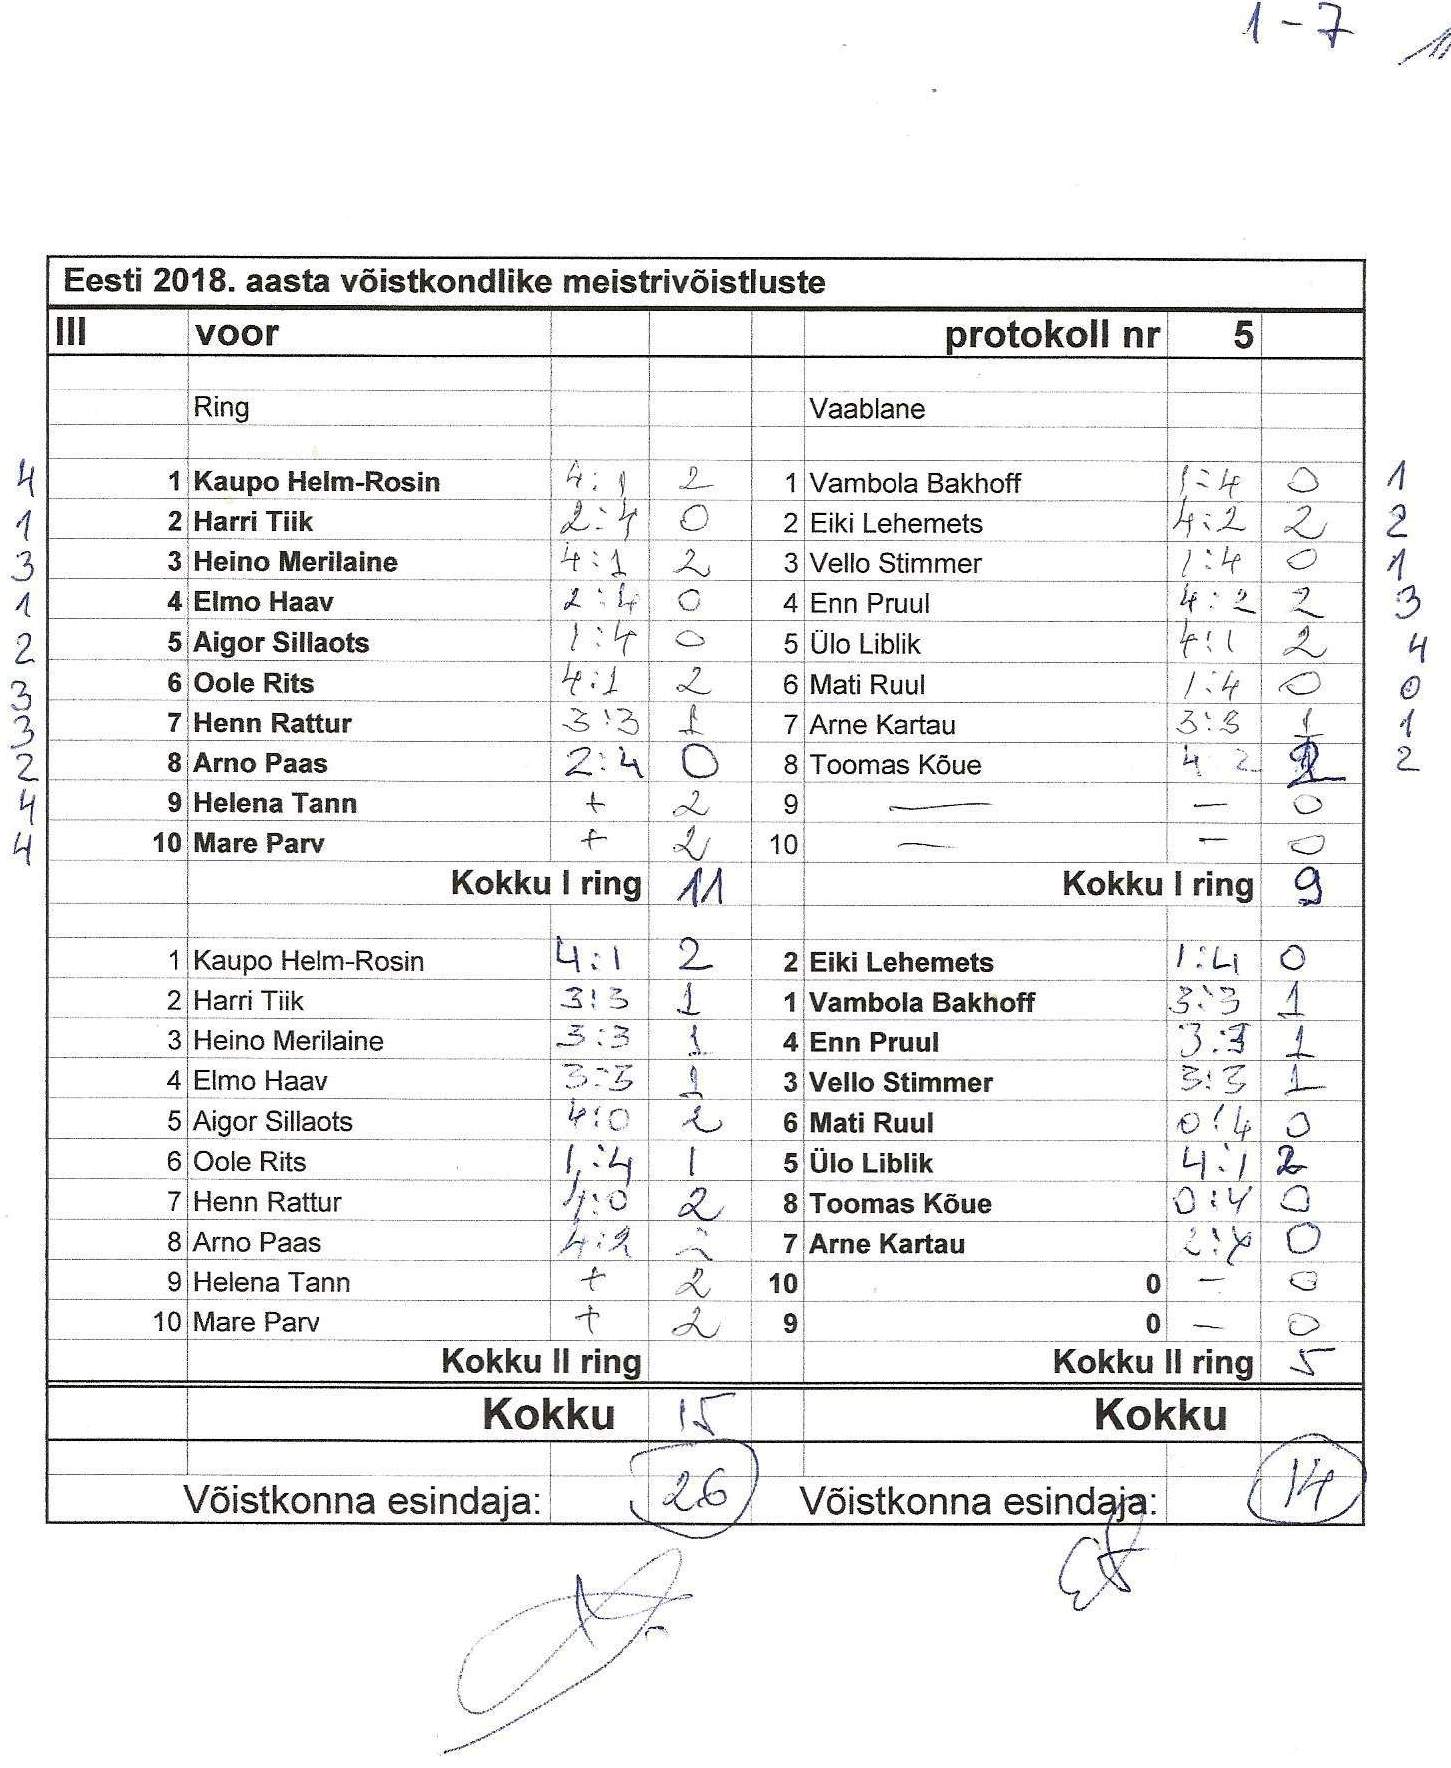 1-7
Eesti 2018. aasta võistkondlike meistrivõistluste
III voor protokoll nr 5
Ring Vaablane
4 1 Kaupo Helm-Rosin 4:1 2 1 Vambola Bakhoff 1:4 0 1
1 2 Harri Tiik 2:4 0 2 Eiki Lehemets 4:2 2 2
3 3 Heino Merilaine 4:1 2 3 Vello Stimmer 1:4 0 1
1 4 Elmo Haav 2:4 0 4 Enn Pruul 4:2 2 3
2 5 Aigor Sillaots 1:4 0 5 Ülo Liblik 4:1 2 4
3 6 Oole Rits 4:1 2 6 Mati Ruul 1:4 0 0
3 7 Henn Rattur 3:3 1 7 Arne Kartau 3:3 1 1
2 8 Arno Paas 2:4 0 8 Toomas Kõue 4 2 2 2
4 9 Helena Tann + 2 9 — — 0
4 10 Mare Parv + 2 10 — — 0
Kokku I ring 11 Kokku I ring 9
1 Kaupo Helm-Rosin 4:1 2 2 Eiki Lehemets 1:4 0
2 Harri Tiik 3:3 1 1 Vambola Bakhoff 3:3 1
3 Heino Merilaine 3:3 1 4 Enn Pruul 3:3 1
4 Elmo Haav 3:3 1 3 Vello Stimmer 3:3 1
5 Aigor Sillaots 4:0 2 6 Mati Ruul 0:4 0
6 Oole Rits 1:4 1 5 Ülo Liblik 4:1 2
7 Henn Rattur 4:0 2 8 Toomas Kõue 0:4 0
8 Arno Paas 4:2 2 7 Arne Kartau 2:4 0
9 Helena Tann + 2 10 0 — 0
10 Mare Parv + 2 9 0 — 0
Kokku II ring Kokku II ring 5
Kokku 15 Kokku
Võistkonna esindaja: 26 Võistkonna esindaja: 14